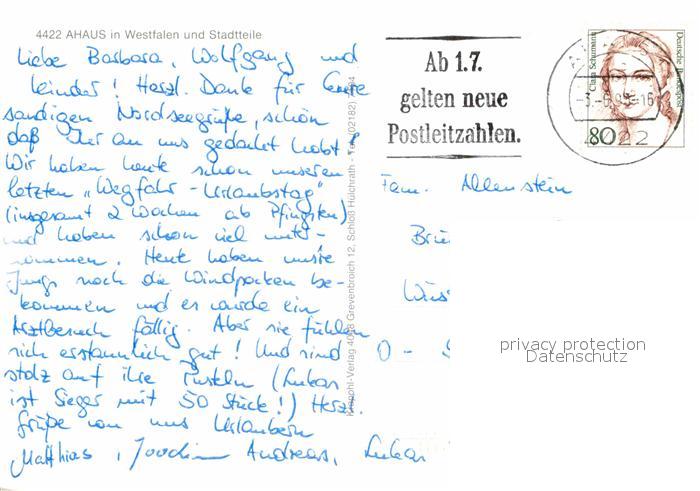 4422 AHAUS in Westfalen und Stadtteile
Liebe Barbara, Wolfgang und
Kinder! Herzl. Dank für Eure
sandigen Nordseegrüße, schön
daß Ihr an uns gedacht habt!
Wir haben heute schon unseren
letzten „Wegfahr-Urlaubstag"
(insgesamt 2 Wochen ab Pfingsten)
und haben schon viel unter-
nommen. Heute haben unsre
Jungs noch die Windpocken be-
kommen und es wurde ein
Arztbesuch fällig. Aber sie fühlen
sich erstaunlich gut! Und sind
stolz auf ihre Pusteln (Lukas
ist Sieger mit 50 Stück!) Herzl.
Grüße von uns Urlaubern
Matthias, Joachim Andreas, Lukas
Krapohl-Verlag 4048 Grevenbroich 12, Schloß Hülchrath - Tel. (02182)
Ab 1.7.
gelten neue
Postleitzahlen.
Clara Schumann
Deutsche Bundespost
80
22
Fam. Allenstein
O -
privacy protection
Datenschutz